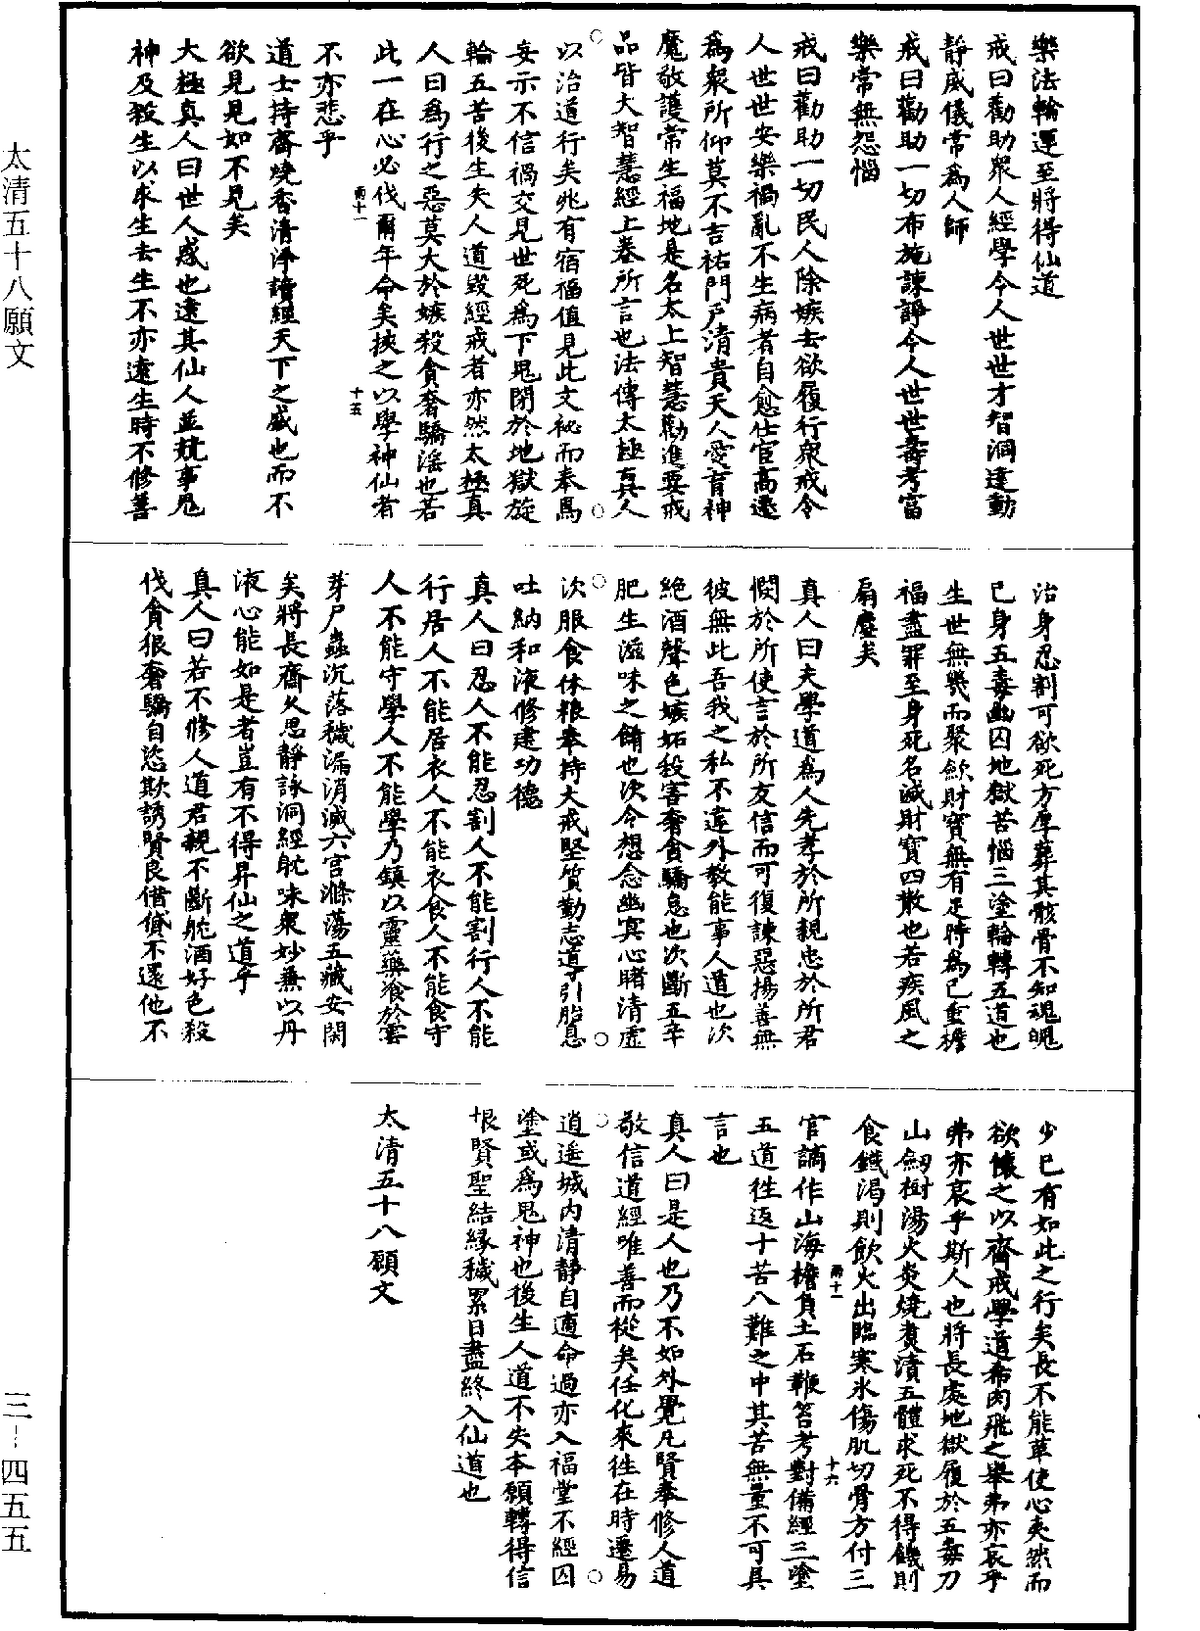 樂法輪運至將得仙道
戒曰勸助衆人經學令人世世才智洞達動
靜威儀常為人師
戒曰勸助一切布施諫諍令人世世壽考富
樂常無怨惱
戒曰勸助一切民人除嫉去欲履行衆戒令
人世世安樂禍亂不生病者自愈仕宦高遷
為衆所仰莫不吉祐門戶清貴天人愛育神
魔敬護常生福地是名太上智慧勸進要戒
品皆大智慧經上卷所言也法傳太極真人
以治道行矣兆有宿福值見此文祕而奉焉
妄示不信禍交見世死為下鬼閉於地獄旋
輪五苦後生失人道毀經戒者亦然太極真
人曰為行之惡莫大於嫉殺貪奢驕淫也若
此一在心必伐爾年命矣挾之以學神仙者
不亦悲乎
道士持齋燒香清淨讀經天下之盛也而不
欲見見如不見矣
大極真人曰世人惑也遠其仙人並競事鬼
神及殺生以求生去生不亦遠生時不修善
治身忍割可欲死方厚葬其骸骨不知魂魄
已身五毒幽囚地獄苦惱三塗輪轉五道也
生世無幾而聚歛財寶無有足時為己重擔
福盡罪至身死名滅財寶四散也若疾風之
扇塵矣
真人曰夫學道為人先孝於所親忠於所君
憫於所使言於所友信而可復諫惡揚善無
彼無此吾我之私不違外教能事人道也次
絕酒聲色嫉妬殺害奢貪驕怠也次斷五辛
肥生滋味之餚也次令想念幽冥心睹清虛
次服食休粮奉持大戒堅質勤志導引胎息
吐納和液修建功德
真人曰忍人不能忍割人不能割行人不能
行居人不能居衣人不能衣食人不能食守
人不能守學人不能學乃鎮以靈藥飡於雲
芽尸蟲沉落穢漏消滅六宮滌蕩五藏安閑
矣將長齋久思靜詠洞經躭味衆妙兼以丹
液心能如是者豈有不得昇仙之道乎
真人曰若不修人道君親不斷躭酒好色殺
伐貪狠奢驕自恣欺誘賢良借貸不還他不
少已有如此之行矣長不能革使心夷然而
欲懷之以齋戒學道希肉飛之舉弗亦哀乎
弗亦哀乎斯人也將長處地獄履於五毒刀
山劒樹湯火炎燒煑漬五體求死不得饑則
食鐵渴則飲火出臨寒氷傷肌切骨方付三
官謫作山海擔負土石鞭笞考對備經三塗
五道往返十苦八難之中其苦無量不可具
言也
真人曰是人也乃不如外覺凡賢奉修人道
敬信道經唯善而從矣任化來往在時遷易
逍遥城內清靜自適命過亦入福堂不經囚
塗或為鬼神也後生人道不失本願轉得信
根賢聖結緣穢累日盡終入仙道也
太清五十八願文
雨十一
十五
雨十一
十六
太清五十八願文
三—四五五